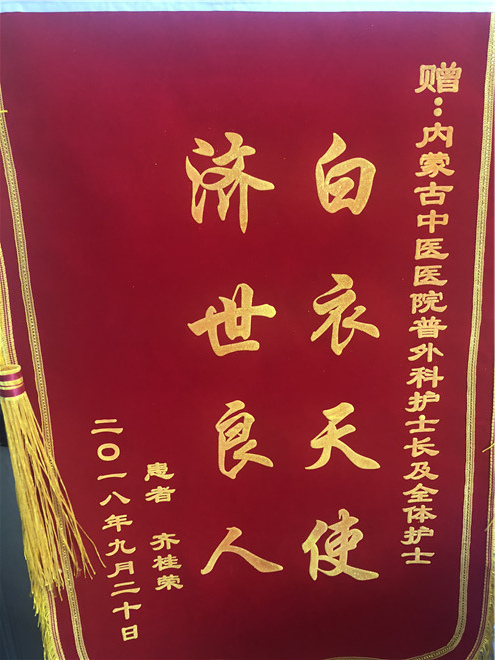 赠：内蒙古中医医院普外科护士长及全体护士
白衣天使
济世良人
患者 齐桂荣
二〇一八年九月二十日